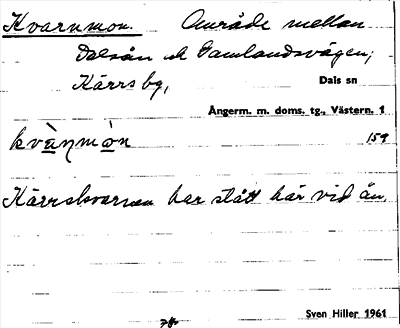 Kvarnmon. Område mellan
Dalsån och Gamlandsvägen;
Kärrsby, Dals sn
Ångerm. m. doms. tg., Västern. 1
kvànmòn 159
Kärrskvarnen har stått här vid ån.
Sven Hiller 1961